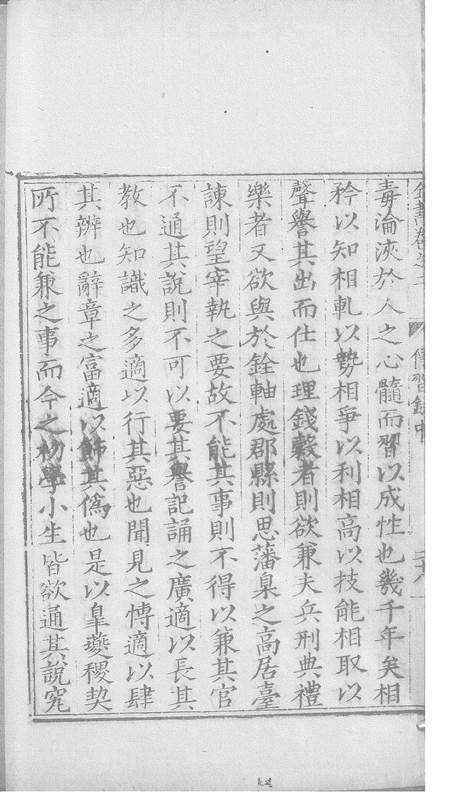 傳習錄中
毒淪浹於人之心髓而習以成性也幾千年矣相
矜以知相軋以勢相爭以利相高以技能相取以
聲譽其出而仕也理錢穀者則欲兼夫兵刑典禮
樂者又欲與於銓軸處郡縣則思藩臬之高居臺
諫則望宰執之要故不能其事則不得以兼其官
不通其說則不可以要其譽記誦之廣適以長其
敎也知識之多適以行其惡也聞見之博適以肆
其辨也辭章之富適以飾其僞也是以臯夔稷契
所不能兼之事而今之初學小生皆欲通其說究